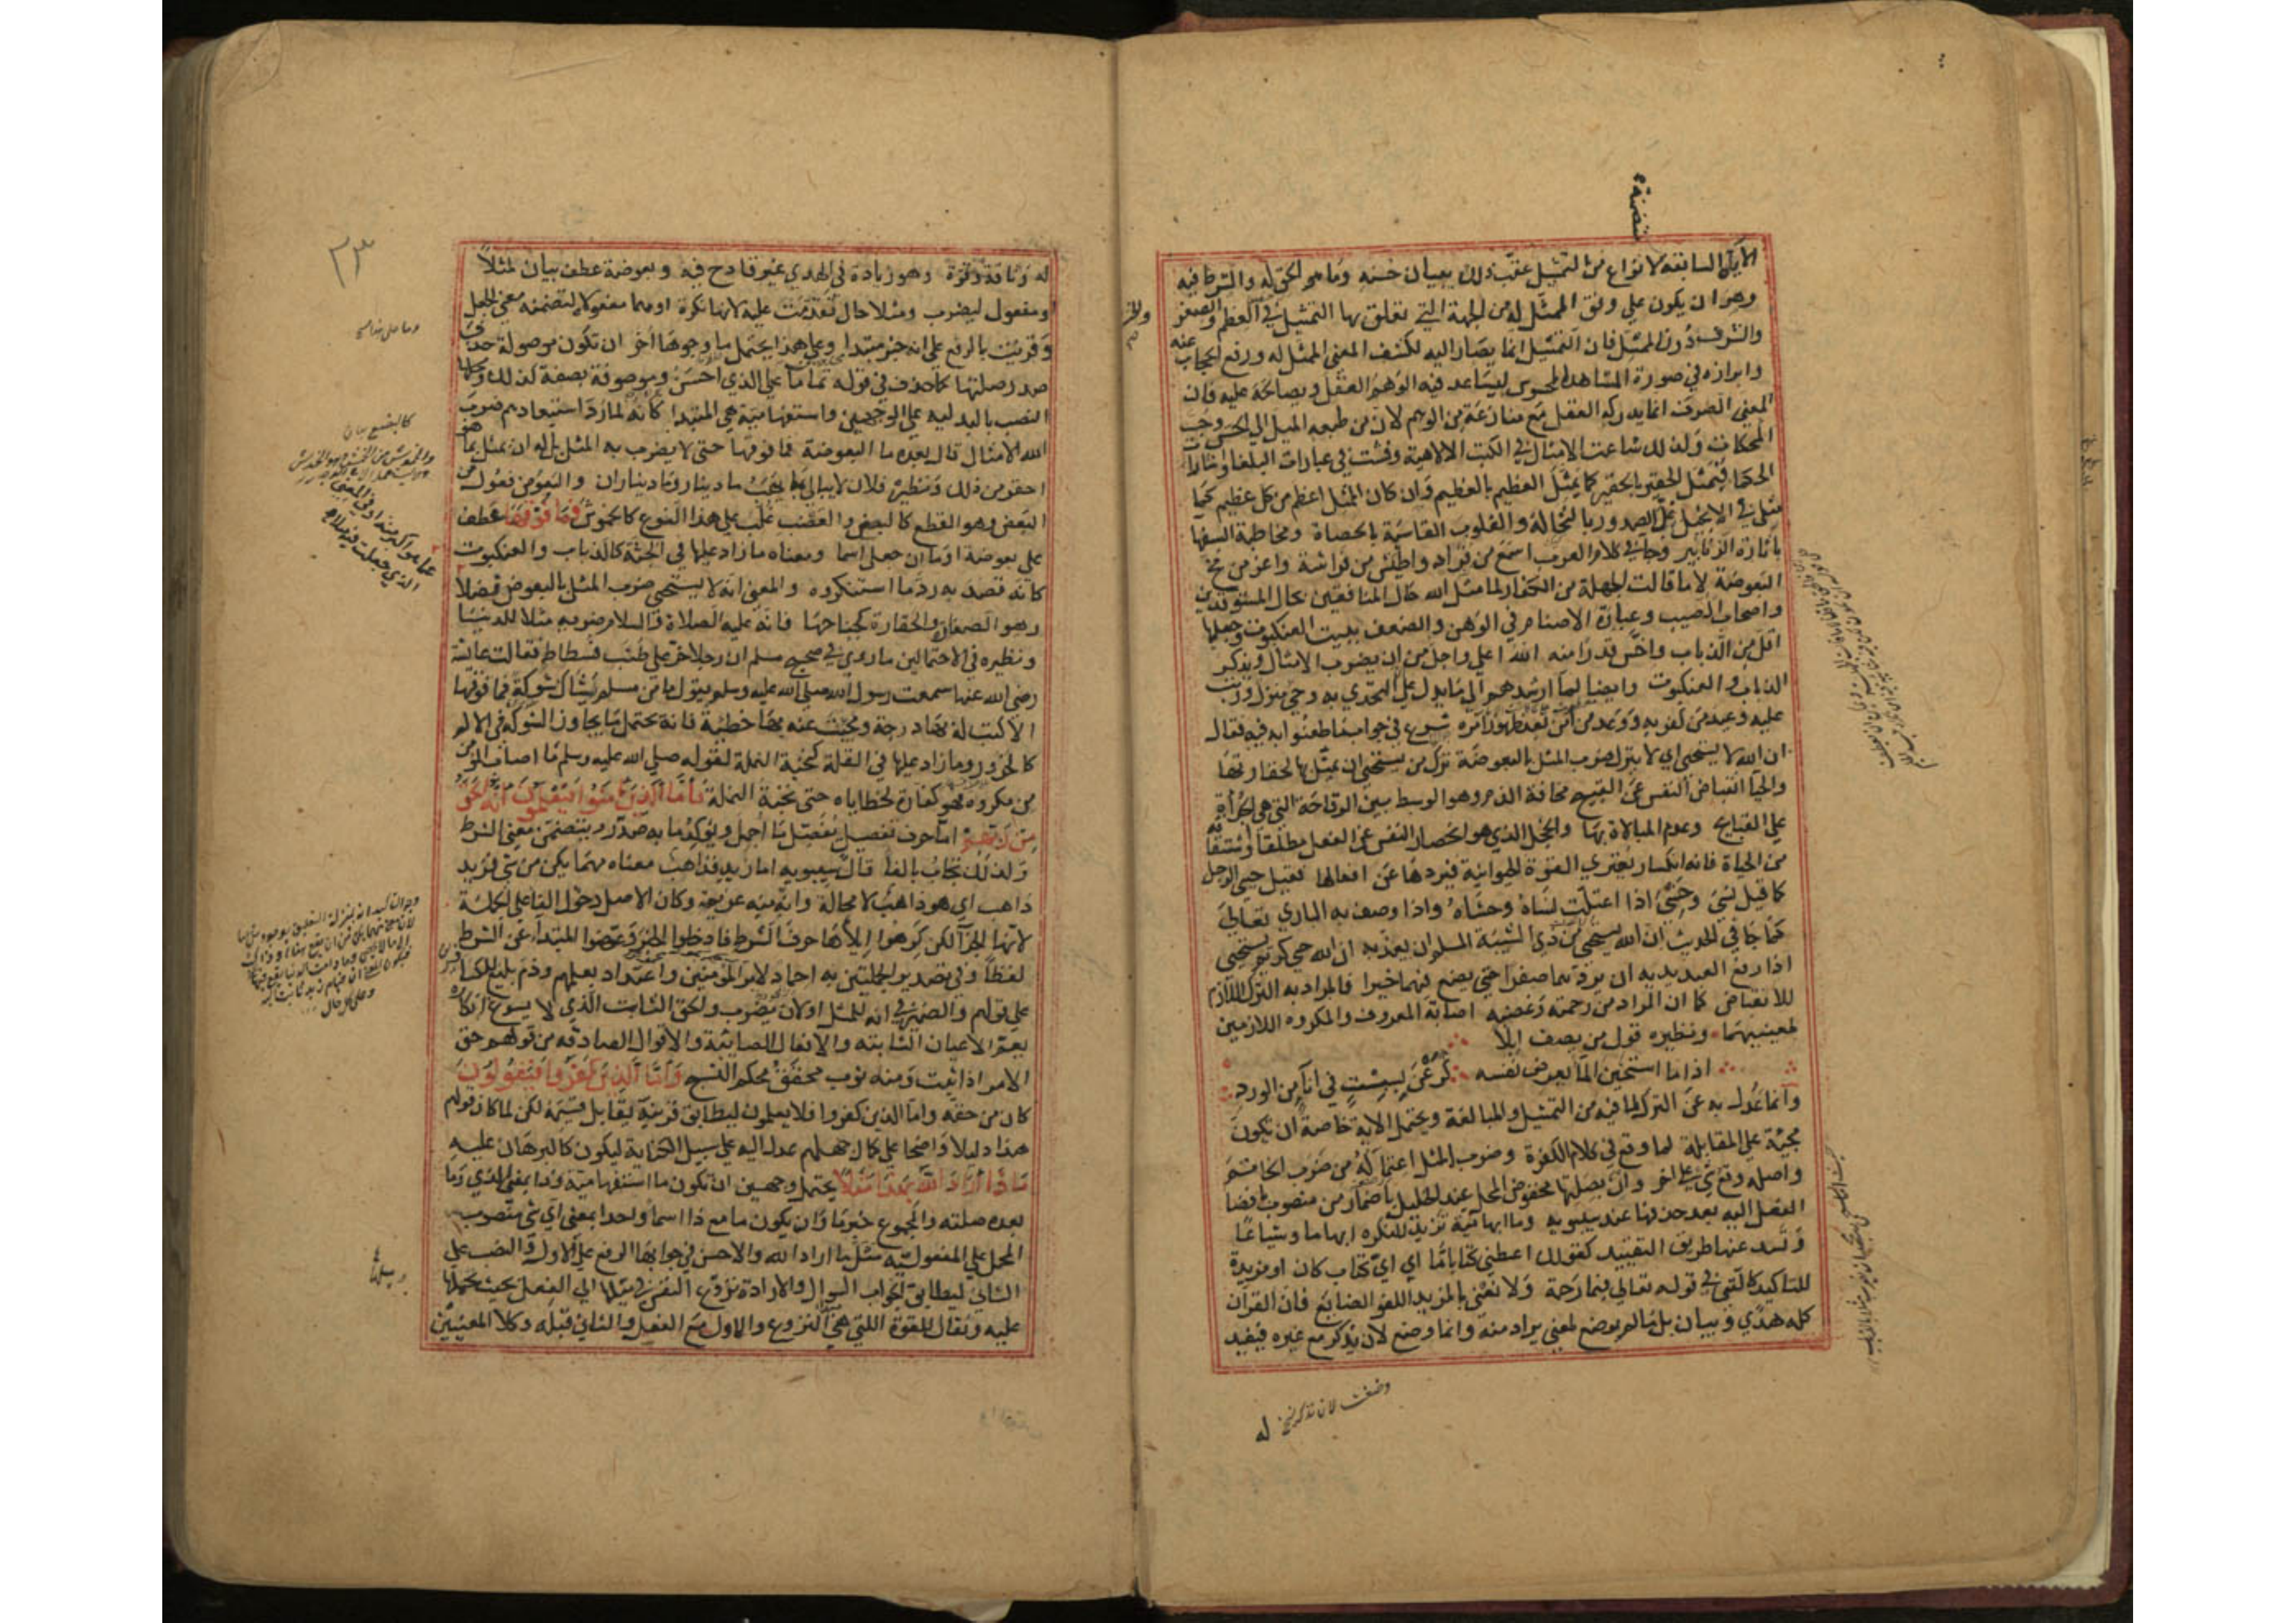 الآيات السابقة لانواع من التمثيل عقب ذلك ببيان حسنه وما هو الحق له والشرط فيه
وهو ان يكون علي وفق الممثل له من الجهة التي تعلق بها التمثيل في العظم والصغر
والشرف دون الممثل فان التمثيل انما يصار اليه لكشف المعني الممثل له ورفع الحجاب عنه
وابرازه في صورة المشاهد المحسوس ليساعد فيه الوهم العقل ويصالحه عليه فان
المعني الصرف انما يدركه العقل مع منازعة من الوهم لان من طبعه الميل الي الحس وحب
المحاكات ولذلك شاعت الامثال في الكتب الالاهية وفشت في عبارات البلغا واشارات
الحكما فيمثل الحقير بالحقير كما يمثل العظيم بالعظيم وان كان الممثل اعظم من كل عظيم كما
مثل في الانجيل غل الصدور بالنخالة والقلوب القاسية بالحصاة ومخاطبة السفها
باثارة الزنابير وجا في كلام العرب اسمع من قراد واطيش من فراشة واعز من مخ
البعوضة لا ما قالت الجهلة من الكفار لما مثل الله حال المنافقين بحال المستوقدين
واصحاب الصيب وعبادة الاصنام في الوهن والضعف ببيت العنكبوت وجعلها
اقل من الذباب واخس قدرا منه الله اعلي واجل من ان يضرب الامثال ويذكر
الذباب والعنكبوت وايضا لما ارشدهم الي ما يدل علي ان المتحدي به وحي منزل ورتب
عليه وعيد من كفر به ووعد من آمن بعد ظهور امره شرع في جواب ما طعنوا به فيه فقال
ان الله لا يستحيي اي لا يترك ضرب المثل بالبعوضة ترك من يستحيي ان يمثل بها لحقارتها
والحيا انقباض النفس عن القبيح مخافة الذم وهو الوسط بين الوقاحة التي هي الجرأة
علي القبايح وعدم المبالاة بها والخجل الذي هو انحصار النفس عن الفعل مطلقا واشتقاقه
من الحياة فانه انكسار يعتري القوة الحيوانية فيردها عن افعالها فقيل حيي الرجل
كما قيل نسي وحشي اذا اعتلت نساه وحشاه واذا وصف به الباري تعالي
كما جا في الحديث ان الله يستحيي من ذي الشيبة المسلم ان يعذبه ان الله حيي كريم يستحيي
اذا رفع العبد يديه ان يردهما صفرا حتي يضع فيهما خيرا فالمراد به الترك اللازم
للانقباض كما ان المراد من رحمته وغضبه اصابة المعروف والمكروه اللازمين
لمعنييهما ونظيره قول من يصف ابلا
اذا ما استحين الما يعرض نفسه كرعن بسبت في انا من الورد
وانما عدل به عن الترك لما فيه من التمثيل والمبالغة ويحتمل الاية خاصة ان يكون
مجيئه علي المقابلة لما وقع في كلام الكفرة وضرب المثل اعتماله من ضرب الخاتم
واصله وقع شي علي اخر وان بصلتها مخفوض المحل عند الخليل باضمار من منصوب بافضا
الفعل اليه بعد حذفها عند سيبويه وما ابهامية تزيد للنكرة ابهاما وشياعا
وتسد عنها طريق التقييد كقولك اعطني كتابا ما اي اي كتاب كان او مزيدة
للتاكيد كالتي في قوله تعالي فبما رحمة ولا نعني بالمزيد اللغو الضايع فان القرآن
كله هدي وبيان بل ما لم يوضع لمعني يراد منه وانما وضع لان يذكر مع غيره فيفيد
وضعت لان تذكر نسخه
له
له وثاقة وقوة وهو زيادة في الهدي غير قادح فيه وبعوضة عطف بيان لمثلا
او مفعول ليضرب ومثلا حال تقدمت عليه لانها نكرة او هما مفعولاه لتضمنه معني الجعل
وقريت بالرفع علي انه خبر مبتدا وعلي هذا يحتمل ما وجوها أخر ان تكون موصولة حذف
صدر صلتها كما حذف في قوله تماما علي الذي احسن وموصوفة بصفة كذلك ومحلها
النصب بالبدلية علي الوجهين واستفهامية هي المبتدا كانه لما رد استبعادهم ضرب
الله الامثال قال بعده ما البعوضة فما فوقها حتي لا يضرب به المثل بل له ان يمثل بما هو
احقر من ذلك ونظيره فلان لا يبالي بما يهب ما دينار وما ديناران والبعوض فعول من
البعض وهو القطع كالبضع والعضب غلب علي هذا النوع كالخموش فما فوقها عطف
علي بعوضة او ما ان جعل اسما ومعناه ما زاد عليها في الجثة كالذباب والعنكبوت
كانه قصد به رد ما استنكروه والمعني انه لا يستحيي ضرب المثل بالبعوض فضلا
وهو الصغر والحقارة كجناحها فانه عليه الصلاة والسلام ضربه مثلا للدنيا
ونظيره في الاحتمالين ما روي في صحيح مسلم ان رجلا خر علي طنب فسطاط فقالت عائشة
رضي الله عنها سمعت رسول الله صلي الله عليه وسلم يقول ما من مسلم يشاك شوكة فما فوقها
الا كتب له بها درجة ومحيت عنه بها خطيئة فانه يحتمل ما يجاوز الشوكة في الالم
كالخرور وما زاد عليها في القلة كنخبة النملة لقوله صلي الله عليه وسلم ما اصاب المؤمن
من مكروه فهو كفارة لخطاياه حتي نخبة النملة فأما الذين آمنوا فيعلمون أنه الحق
من ربهم اما حرف تفصيل يفصل ما اجمل ويؤكد ما به صدر ويتضمن معني الشرط
ولذلك يجاب بالفا قال سيبويه اما زيد فذاهب معناه مهما يكن من شي فزيد
ذاهب اي هو ذاهب لا محالة وانه منه عزيمة وكان الاصل دخول الفا علي الجملة
لانها الجزآ لكن كرهوا ايلاها حرف الشرط فادخلوا الخبر وعوضوا المبتدا عن الشرط
لفظا وفي تصدير الجملتين به احماد لامر المؤمنين واعتداد بعلمهم وذم بليغ للكافرين
علي قولهم والضمير في انه للمثل او لان يضرب والحق الثابت الذي لا يسوغ انكاره
يعم الاعيان الثابته والافعال الصائبة والاقوال الصادقه من قولهم حق
الامر اذا ثبت ومنه ثوب محقق محكم النسج وأما الذين كفروا فيقولون
كان من حقه واما الذين كفروا فلا يعلمون ليطابق قرينه يقابل قسيمه لكن لما كان قولهم
هذا دليلا واضحا علي كمال جهلهم عدل اليه علي سبيل الكناية ليكون كالبرهان عليه
ماذا أراد الله بهذا مثلا يحتمل وجهين ان تكون ما استفهامية وذا بمعني الذي وما
بعده صلته والمجموع خبر ما وان يكون ما مع ذا اسما واحدا بمعني اي شي منصوب
المحل علي المفعولية مثل ما اراد الله والاحسن في جوابها الرفع علي الاول والنصب علي
الثاني ليطابق الجواب السوال والارادة نزوع النفس وميلها الي الفعل بحيث يحملها
عليه ويقال للقوة التي هي مبدأ النزوع والاول مع الفعل والثاني قبله وكلا المعنيين